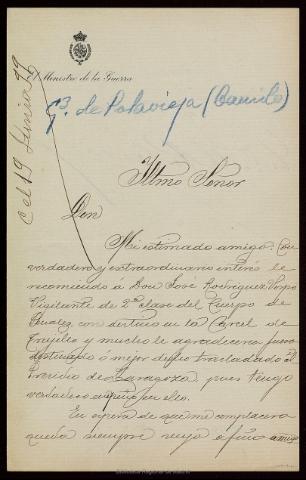 El Ministro de la Guerra
C el 19 Junio 99
G.ª de Polavieja (Camilo)
Iltmo Señor
Don
Mi estimado amigo: Con
verdadero y extraordinario interés le
recomiendo a Don José Rodriguez
Vigilante de 2ª clase del Cuerpo de
Penales con destino en la Carcel de
Trujillo y mucho le agradeceria fuese
destinado ó mejor dicho trasladado al
Presidio de Zaragoza, pues tengo
verdadero empeño por ello.
En espera de que me complacera
queda siempre suyo afmo amigo